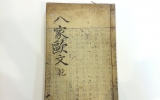 八家歐文
乾